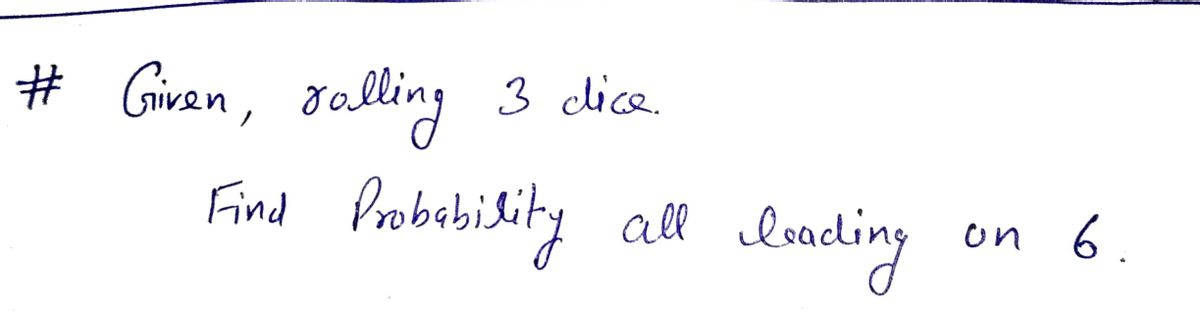 # Given, rolling 3 dice.
Find Probability all leading on 6.